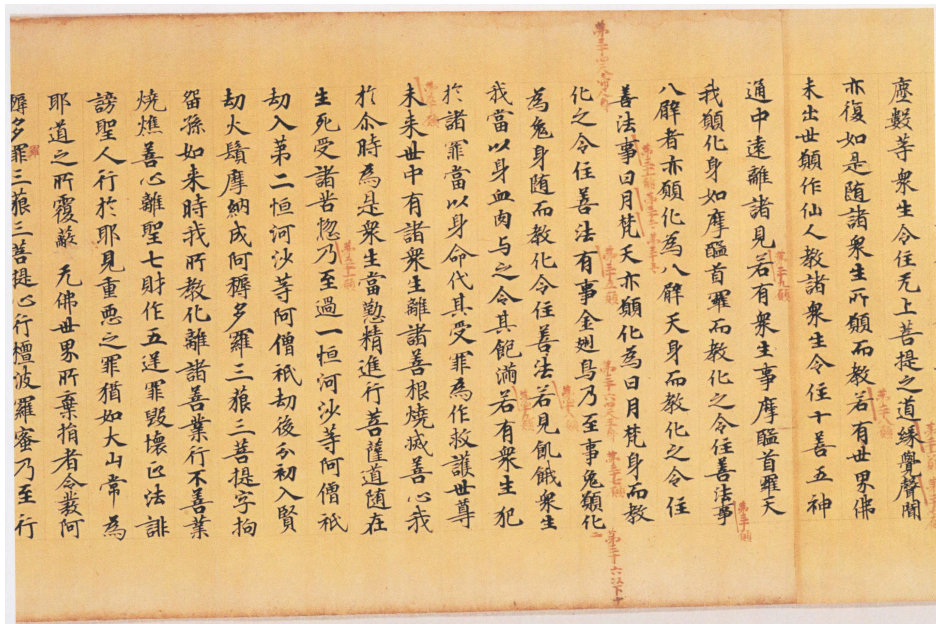 塵數等衆生令住无上菩提之道縁覺聲聞
亦復如是随諸衆生所願而教若有世界佛
未出世願作仙人教諸衆生令住十善五神
通中遠離諸見若有衆生事摩醯首羅天
我願化身如摩醯首羅而教化之令住善法事
八臂者亦願化為八臂天身而教化之令住
善法事日月梵天亦願化為日月梵身而教
化之令住善法有事金翅鳥乃至事兔願化
為兔身随而教化令住善法若見飢餓衆生
我當以身血肉与之令其飽滿若有衆生犯
於諸罪當以身命代其受罪為作救護世尊
未来世中有諸衆生離諸善根燒滅善心我
於尒時為是衆生當懃精進行菩薩道随在
生死受諸苦惚乃至過一恒河沙等阿僧祇
劫入第二恒河沙等阿僧祇劫後分初入賢
劫火鬘摩納成阿耨多羅三藐三菩提字拘
留孫如来時我所教化離諸善業行不善業
燒燋善心離聖七財作五逆罪毀壞正法誹
謗聖人行於耶見重悪之罪猶如大山常為
耶道之所覆蔽无佛世界所棄捐者令發阿
耨多羅三藐三菩提心行檀波羅蜜乃至行